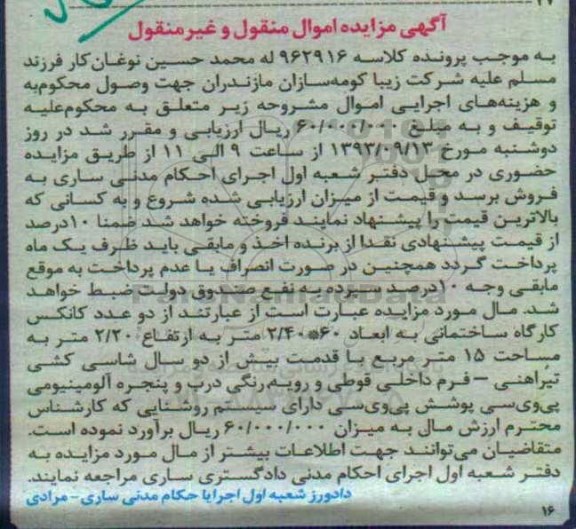 آگهی مزایده اموال منقول و غیر منقول
به موجب پرونده کلاسه ۹۶۲۹۱۶ له محمد حسین نوغان کار فرزند
مسلم علیه شرکت زیبا کومه سازان مازندران جهت وصول محکوم‌به
و هزینه‌های اجرایی اموال مشروحه زیر متعلق به محکوم‌علیه
توقیف و به مبلغ ۶۰/۰۰۰/۰۰۰ ریال ارزیابی و مقرر شد در روز
دوشنبه مورخ ۱۳۹۳/۰۹/۱۳ از ساعت ۹ الی ۱۱ از طریق مزایده
حضوری در محل دفتر شعبه اول اجرای احکام مدنی ساری به
فروش برسد و قیمت از میزان ارزیابی شده شروع و به کسانی که
بالاترین قیمت را پیشنهاد نمایند فروخته خواهد شد ضمنا ۱۰درصد
از قیمت پیشنهادی نقدا از برنده اخذ و مابقی باید ظرف یک ماه
پرداخت گردد همچنین در صورت انصراف یا عدم پرداخت به موقع
مابقی وجه ۱۰درصد سپرده به نفع صندوق دولت ضبط خواهد
شد. مال مورد مزایده عبارت است از عبارتند از دو عدد کانکس
کارگاه ساختمانی به ابعاد ۶۰*۲/۴۰ متر به ارتفاع ۲/۲۰ متر به
مساحت ۱۵ متر مربع با قدمت بیش از دو سال شاسی کشی
تیرآهنی – فرم داخلی قوطی و رویه رنگی درب و پنجره آلومینیومی
پی‌وی‌سی پوشش پی‌وی‌سی دارای سیستم روشنایی که کارشناس
محترم ارزش مال به میزان ۶۰/۰۰۰/۰۰۰ ریال برآورد نموده است.
متقاضیان می‌توانند جهت اطلاعات بیشتر از مال مورد مزایده به
دفتر شعبه اول اجرای احکام مدنی دادگستری ساری مراجعه نمایند.
دادورز شعبه اول اجرایا حکام مدنی ساری - مرادی
۱۶